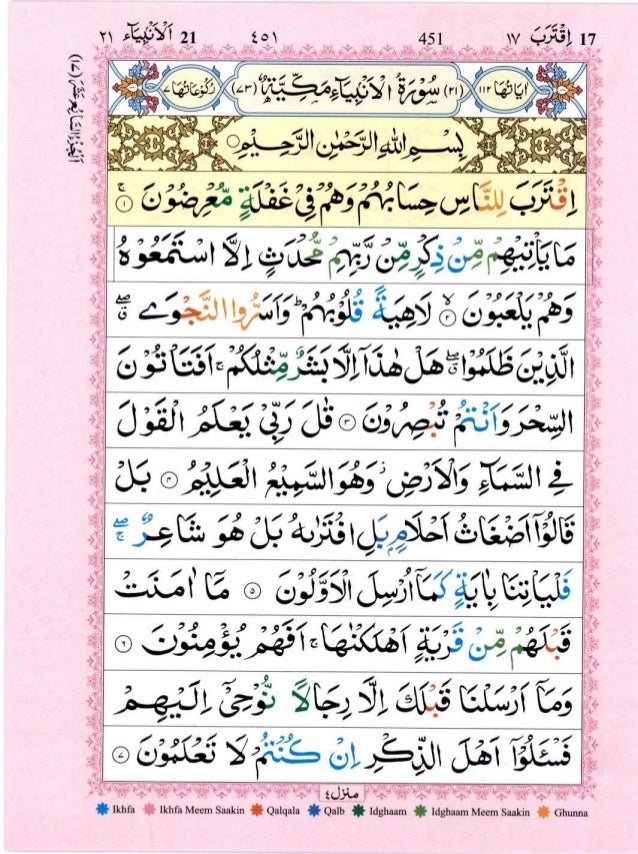 اِقْتَرَبَ ١٧ 17
451
٤٥١
21 اَلْاَنْۢبِيَآء ٢١
اٰيَاتُهَا ١١٢
(٢١) سُوْرَةُ الْاَنْۢبِيَآءِ مَكِّيَّةٌ (٧٣)
رُكُوْعَاتُهَا ٧
بِسْمِ اللهِ الرَّحْمٰنِ الرَّحِيْمِ
اِقْتَرَبَ لِلنَّاسِ حِسَابُهُمْ وَهُمْ فِيْ غَفْلَةٍ مُّعْرِضُوْنَ ۚ ١
مَا يَاْتِيْهِمْ مِّنْ ذِكْرٍ مِّنْ رَّبِّهِمْ مُّحْدَثٍ اِلَّا اسْتَمَعُوْهُ
وَهُمْ يَلْعَبُوْنَ ۙ ٢ لَاهِيَةً قُلُوْبُهُمْ ؕ وَاَسَرُّوا النَّجْوَے ۖ ق
الَّذِيْنَ ظَلَمُوْا ۖ ق هَلْ هٰذَاۤ اِلَّا بَشَرٌ مِّثْلُكُمْ ۚ اَفَتَاْتُوْنَ
السِّحْرَ وَاَنْتُمْ تُبْصِرُوْنَ ٣ قٰلَ رَبِّيْ يَعْلَمُ الْقَوْلَ
فِي السَّمَآءِ وَالْاَرْضِ ز وَهُوَ السَّمِيْعُ الْعَلِيْمُ ٤ بَلْ
قَالُوْۤا اَضْغَاثُ اَحْلَامٍۭ بَلِ افْتَرٰىهُ بَلْ هُوَ شَاعِرٌ ۖ ج
فَلْيَاْتِنَا بِاٰيَةٍ كَمَاۤ اُرْسِلَ الْاَوَّلُوْنَ ٥ مَاۤ اٰمَنَتْ
قَبْلَهُمْ مِّنْ قَرْيَةٍ اَهْلَكْنٰهَا ۚ اَفَهُمْ يُؤْمِنُوْنَ ٦
وَمَاۤ اَرْسَلْنَا قَبْلَكَ اِلَّا رِجَالًا نُّوْحِيْۤ اِلَيْهِمْ
فَسْـَٔلُوْۤا اَهْلَ الذِّكْرِ اِنْ كُنْتُمْ لَا تَعْلَمُوْنَ ٧
منزل ٤
Ikhfa Ikhfa Meem Saakin Qalqala Qalb Idghaam Idghaam Meem Saakin Ghunna